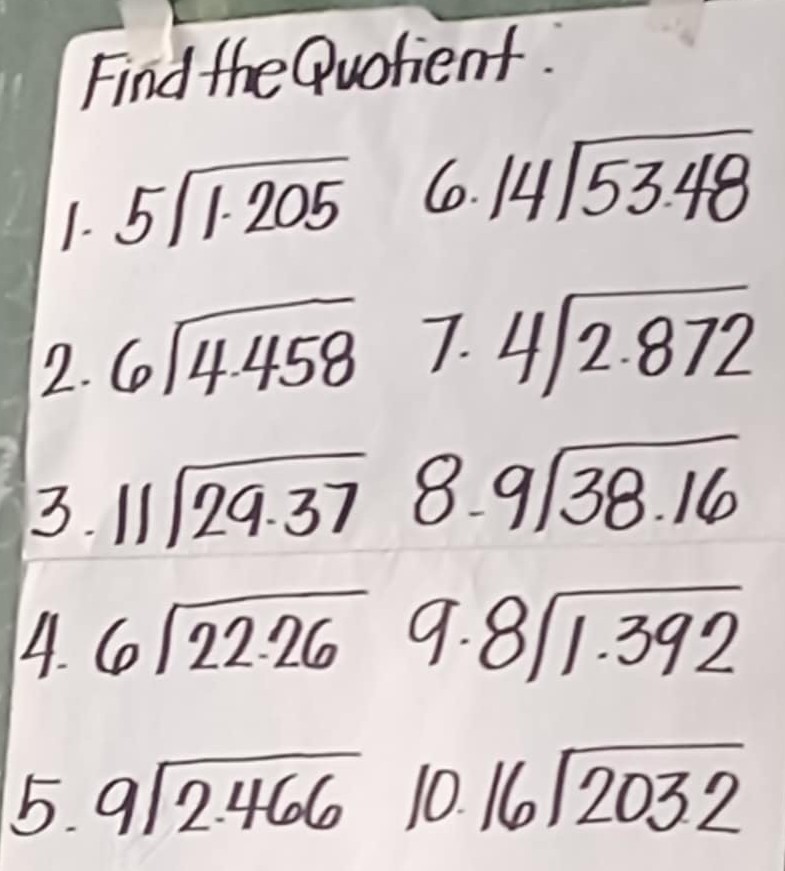 Find the Quotient:
1. 5⟌1.205
2. 6⟌4.458
3. 11⟌29.37
4. 6⟌22.26
5. 9⟌2.466
6. 14⟌53.48
7. 4⟌2.872
8. 9⟌38.16
9. 8⟌1.392
10. 16⟌203.2